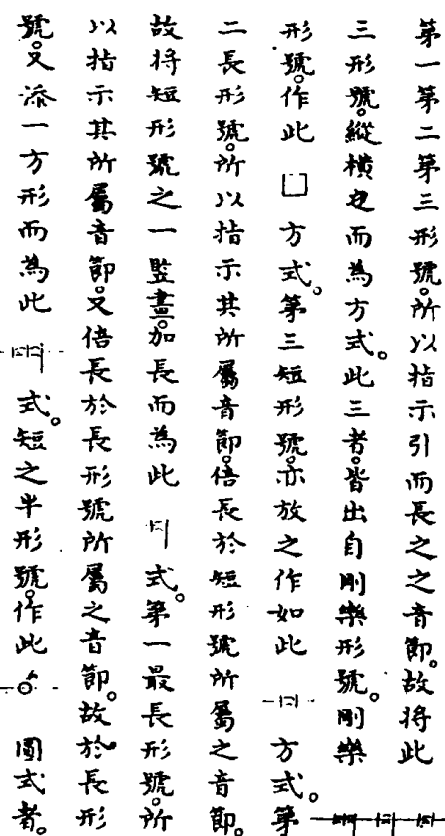 第一第二第三形號。所以指示引而長之之音節。故將此
三形號。縱橫之而為方式。此三者。皆出自剛樂形號。剛樂
形號。作此 方式。第三短形號。亦放之作如此 方式。第
二長形號。所以指示其所屬音節。倍長於短形號所屬之音節。
故將短形號之一豎畫。加長而為此 式。第一最長形號。所
以指示其所屬音節。又倍長於長形號所屬之音節。故於長形
號。又添一方形而為此 式。短之半形號。作此 圓式者。